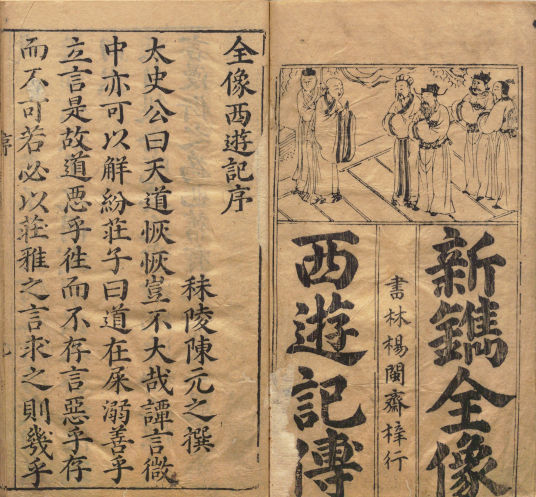 新鐫全像
書林楊閩齋梓行
西遊記傳
全像西遊記序
秣陵陳元之撰
太史公曰天道恢恢豈不大哉譚言微
中亦可以觧紛莊子曰道在屎溺善乎
立言是故道惡乎徃而不存言惡乎存
而不可若必以莊雅之言求之則幾乎
序